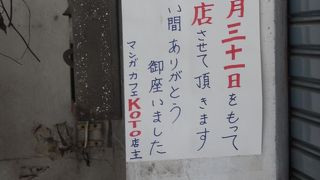 月三十一日をもって
店させて頂きます
い間ありがとう
御座いました
マンガカフェKOTO店主